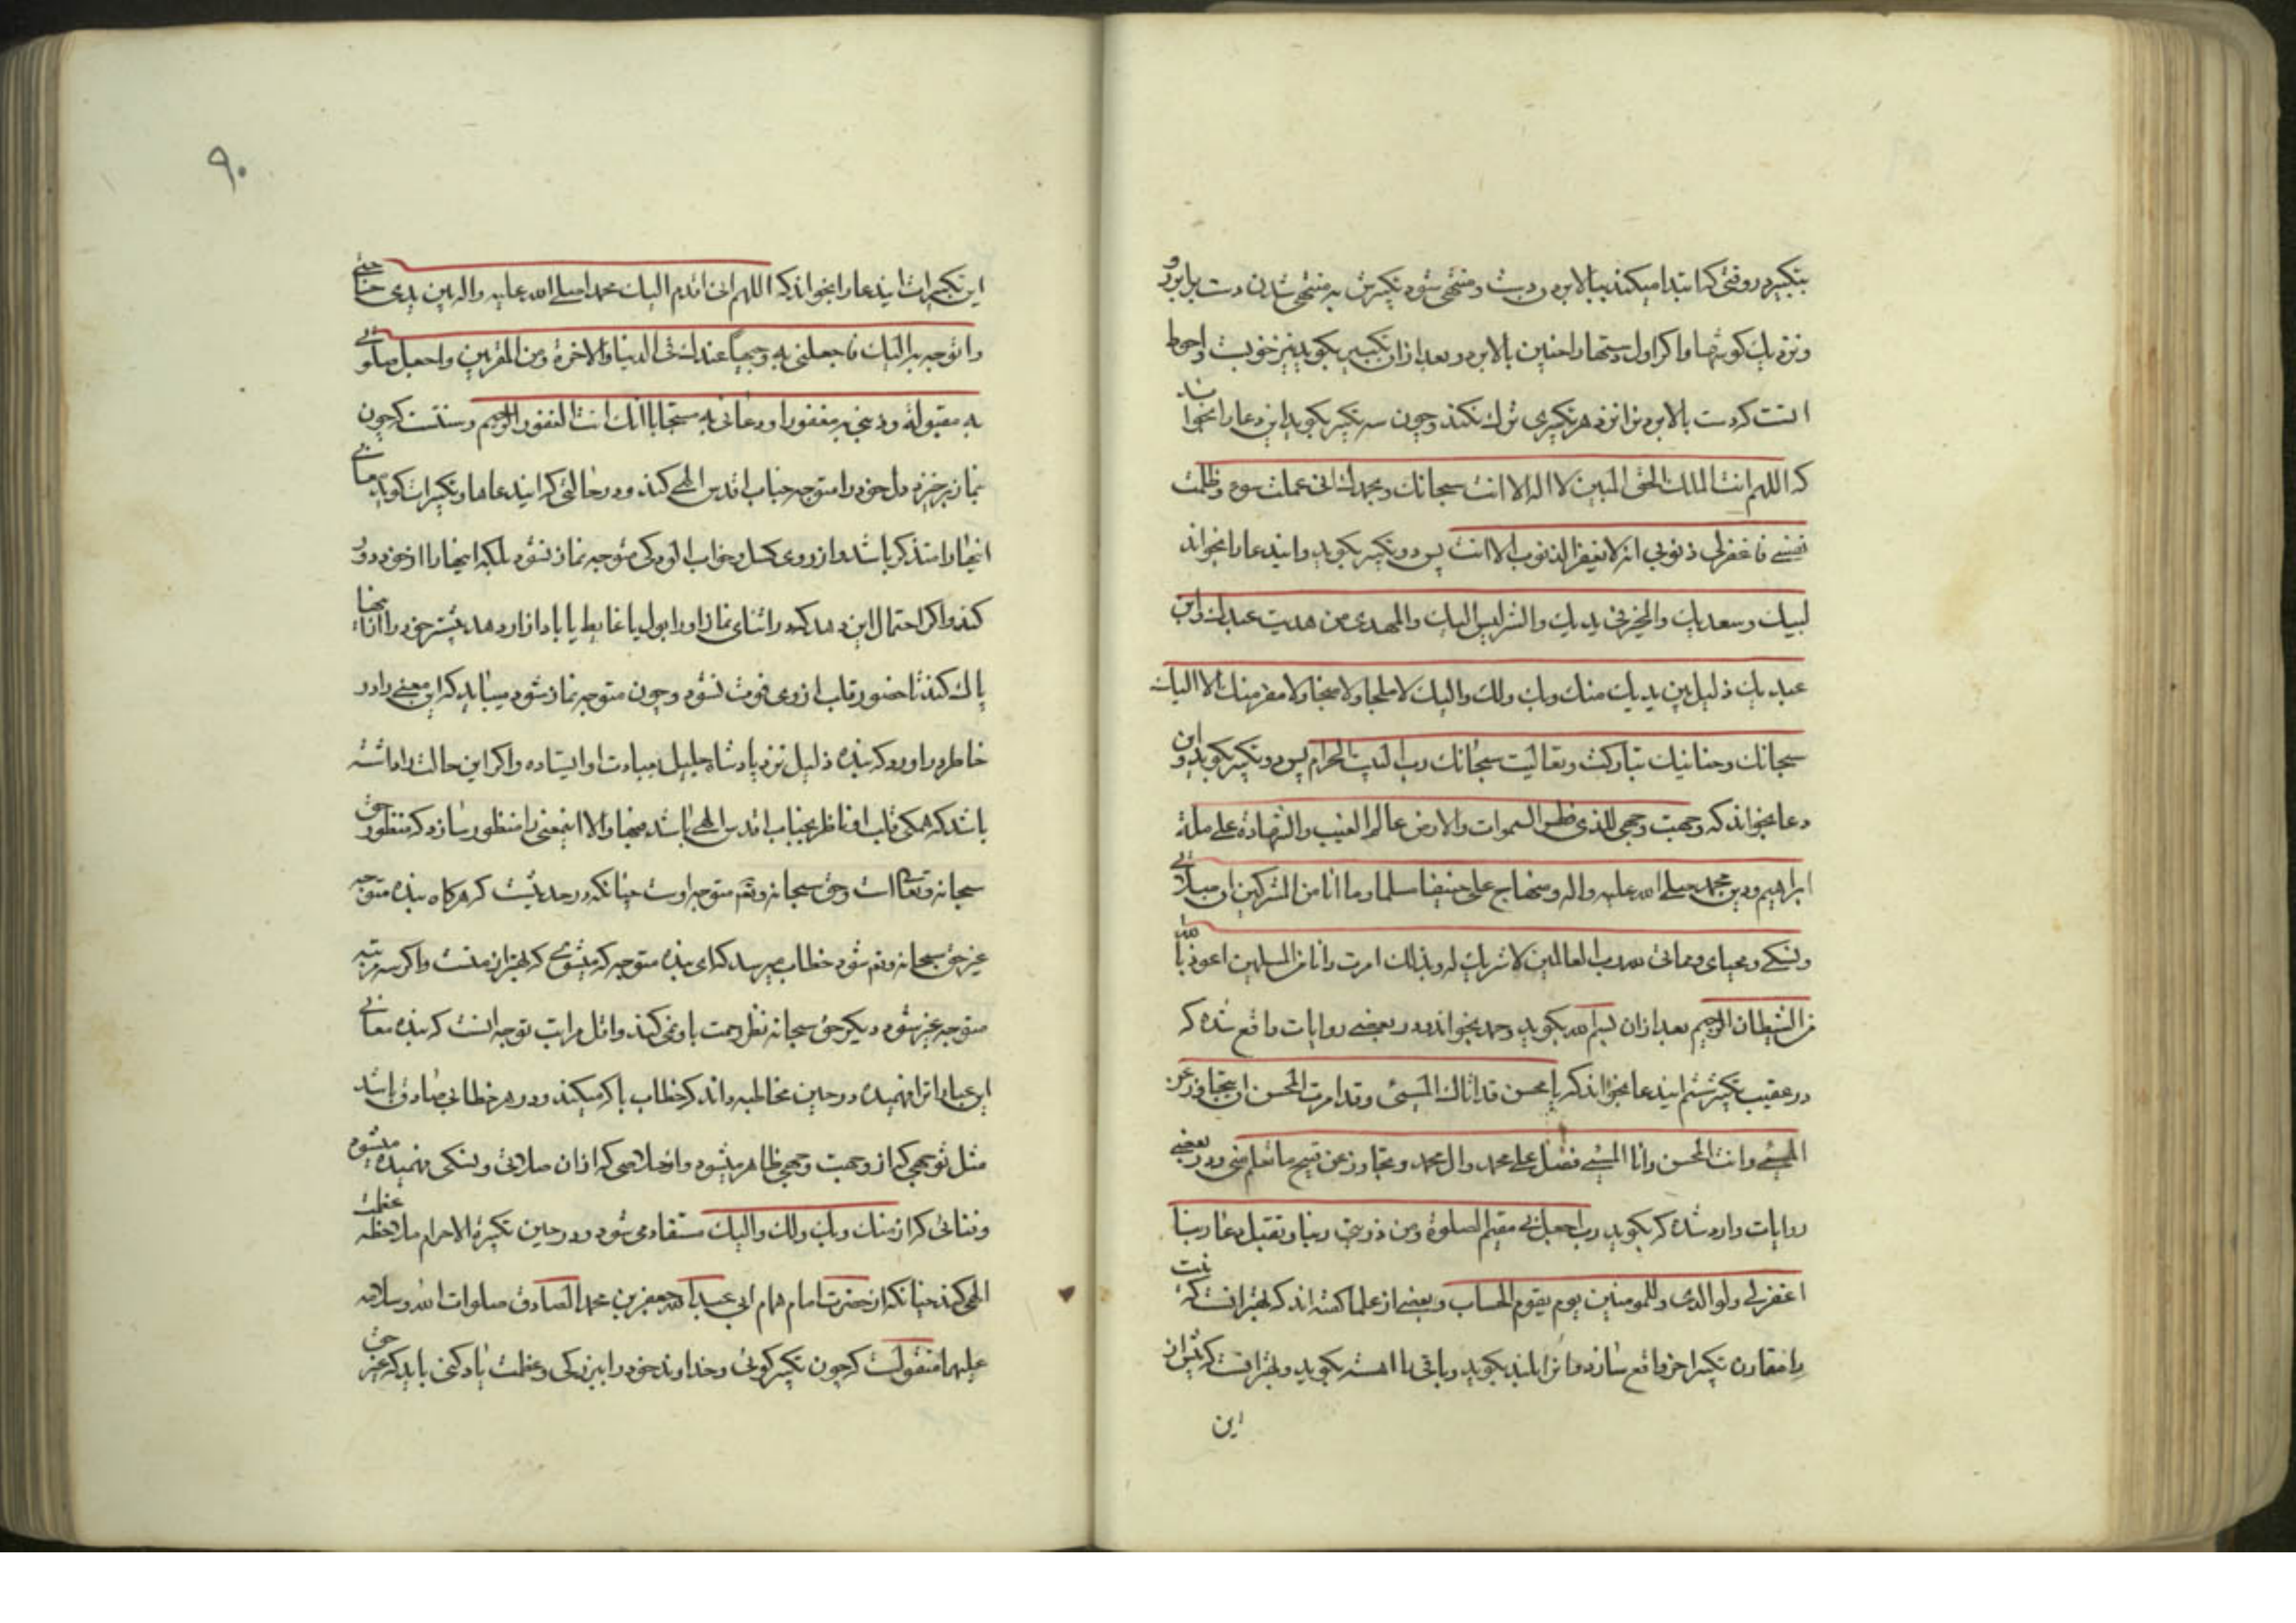 بتکبیر در وقتی که ابتدا میکند ببالا بردن دست و منتهی شود تکبیرش به منتهی شدن دست برابر رو
و نزدیک کوشها و اکر اول دستها را چنین بالا برد و بعد از ان تکبیر بکوید نیز خوبست و احوط
انست که دست بالا بردن را نزد هر تکبیری ترک نکند و چون سه تکبیر بکوید این دعا را بخواند
که اللهم انت الملک الحق المبین لا اله الا انت سبحانک و بحمدک انی عملت سوء و ظلمت
نفسی فاغفرلی ذنوبی انه لا یغفر الذنوب الا انت پس دو تکبیر بکوید و ایندعا را بخواند
لبیک و سعدیک والخیر فی یدیک والشر لیس الیک والمهدی من هدیت عبدک وابن
عبدیک ذلیل بین یدیک منک وبک ولک والیک لا ملجا ولا منجا ولا مفر منک الا الیک
سبحانک وحنانیک تبارکت وتعالیت سبحانک رب البیت الحرام پس دو تکبیر بکوید و این
دعا بخواند که وجهت وجهی للذی فطر السموات والارض عالم الغیب والشهادة علی ملة
ابراهیم ودین محمد صلی الله علیه واله ومنهاج علی حنیفا مسلما وما انا من المشرکین ان صلاتی
ونسکی ومحیای ومماتی لله رب العالمین لا شریک له وبذلک امرت وانا من المسلمین اعوذ بالله
من الشیطان الرجیم بعد از ان بسم الله بکوید و حمد بخواند و در بعضی روایات واقع شده که
در عقیب تکبیر ششم ایندعا بخواند که یا محسن قد اتاک المسیئ وقد امرت المحسن ان یتجاوز عن
المسیئ وانت المحسن وانا المسیئ فصل علی محمد وال محمد وتجاوز عن قبیح ما تعلم منی و در بعضی
روایات وارد شده که بکوید رب اجعلنی مقیم الصلوة ومن ذریتی ربنا وتقبل دعا ربنا
اغفرلی ولوالدی وللمومنین یوم یقوم الحساب و بعضی از علما کفته اند که بهتر انست که نیت
را مقارن تکبیر اخر واقع سازد و انرا بلند بکوید و باقی را اهسته بکوید و بهتر انست که پیش از
این
۹۰
این تکبیرات ایندعا را بخواند که اللهم انی اقدم الیک محمدا صلی الله علیه واله بین یدی حاجتی
واتوجه به الیک فاجعلنی به وجیها عندک فی الدنیا والاخرة ومن المقربین واجعل صلوتی
به مقبولة وذنبی به مغفورا ودعائی به مستجابا انک انت الغفور الرحیم و سنتست که چون
بنماز برخیزد دل خود را متوجه جناب اقدس الهی کند و در حالتی که ایندعاها و تکبیرات کوید معانی
اینها را متذکر باشد و از روی کسل و خواب الودکی متوجه نماز نشود بلکه اینها را از خود دور
کند و اکر احتمال این دهد که در اثنای نماز او را بول یا غایط یا باد ازار دهد پیشتر خود را از اینها
پاک کند تا حضور قلب از وی فوت نشود و چون متوجه نماز شود میباید که این معنی را در
خاطر در اورد که بنده ذلیل نزد پادشاه جلیل بعبادت او ایستاده و اکر این حالت را داشته
باشد که همکی قلب او ناظر بجناب اقدس الهی باشد فبها والا اینمعنی را منظور سازد که منظور حق
سبحانه و تعالی است و حق سبحانه و تعم متوجه اوست چنانکه در حدیثست که هرکاه بنده متوجه
غیر حق سبحانه و تعم شود خطاب میرسد که ای بنده متوجه که میشوی که بهتر از منست و اکر سه مرتبه
متوجه غیر شود دیکر حق سبحانه نظر رحمت باو نمی کند و اقل مراتب توجه انست که بنده معانی
این عبارات را فهمیده در حین مخاطبه داند که خطاب با که میکند و در هر خطابی صادق باشد
مثل توجهی که از وجهت وجهی ظاهر میشود و اخلاصی که از ان صلاتی و نسکی فهمیده میشود
و فنائی که از منک وبک ولک والیک مستفاد می شود و در حین تکبیرة الاحرام ملاحظه عظمت
الهی کند چنانکه از حضرت امام همام ابی عبدالله جعفر بن محمد الصادق صلوات الله وسلامه
علیهما منقولست که چون تکبیر کوئی و خداوند خود را ببزرکی و عظمت یاد کنی باید که غیر حق